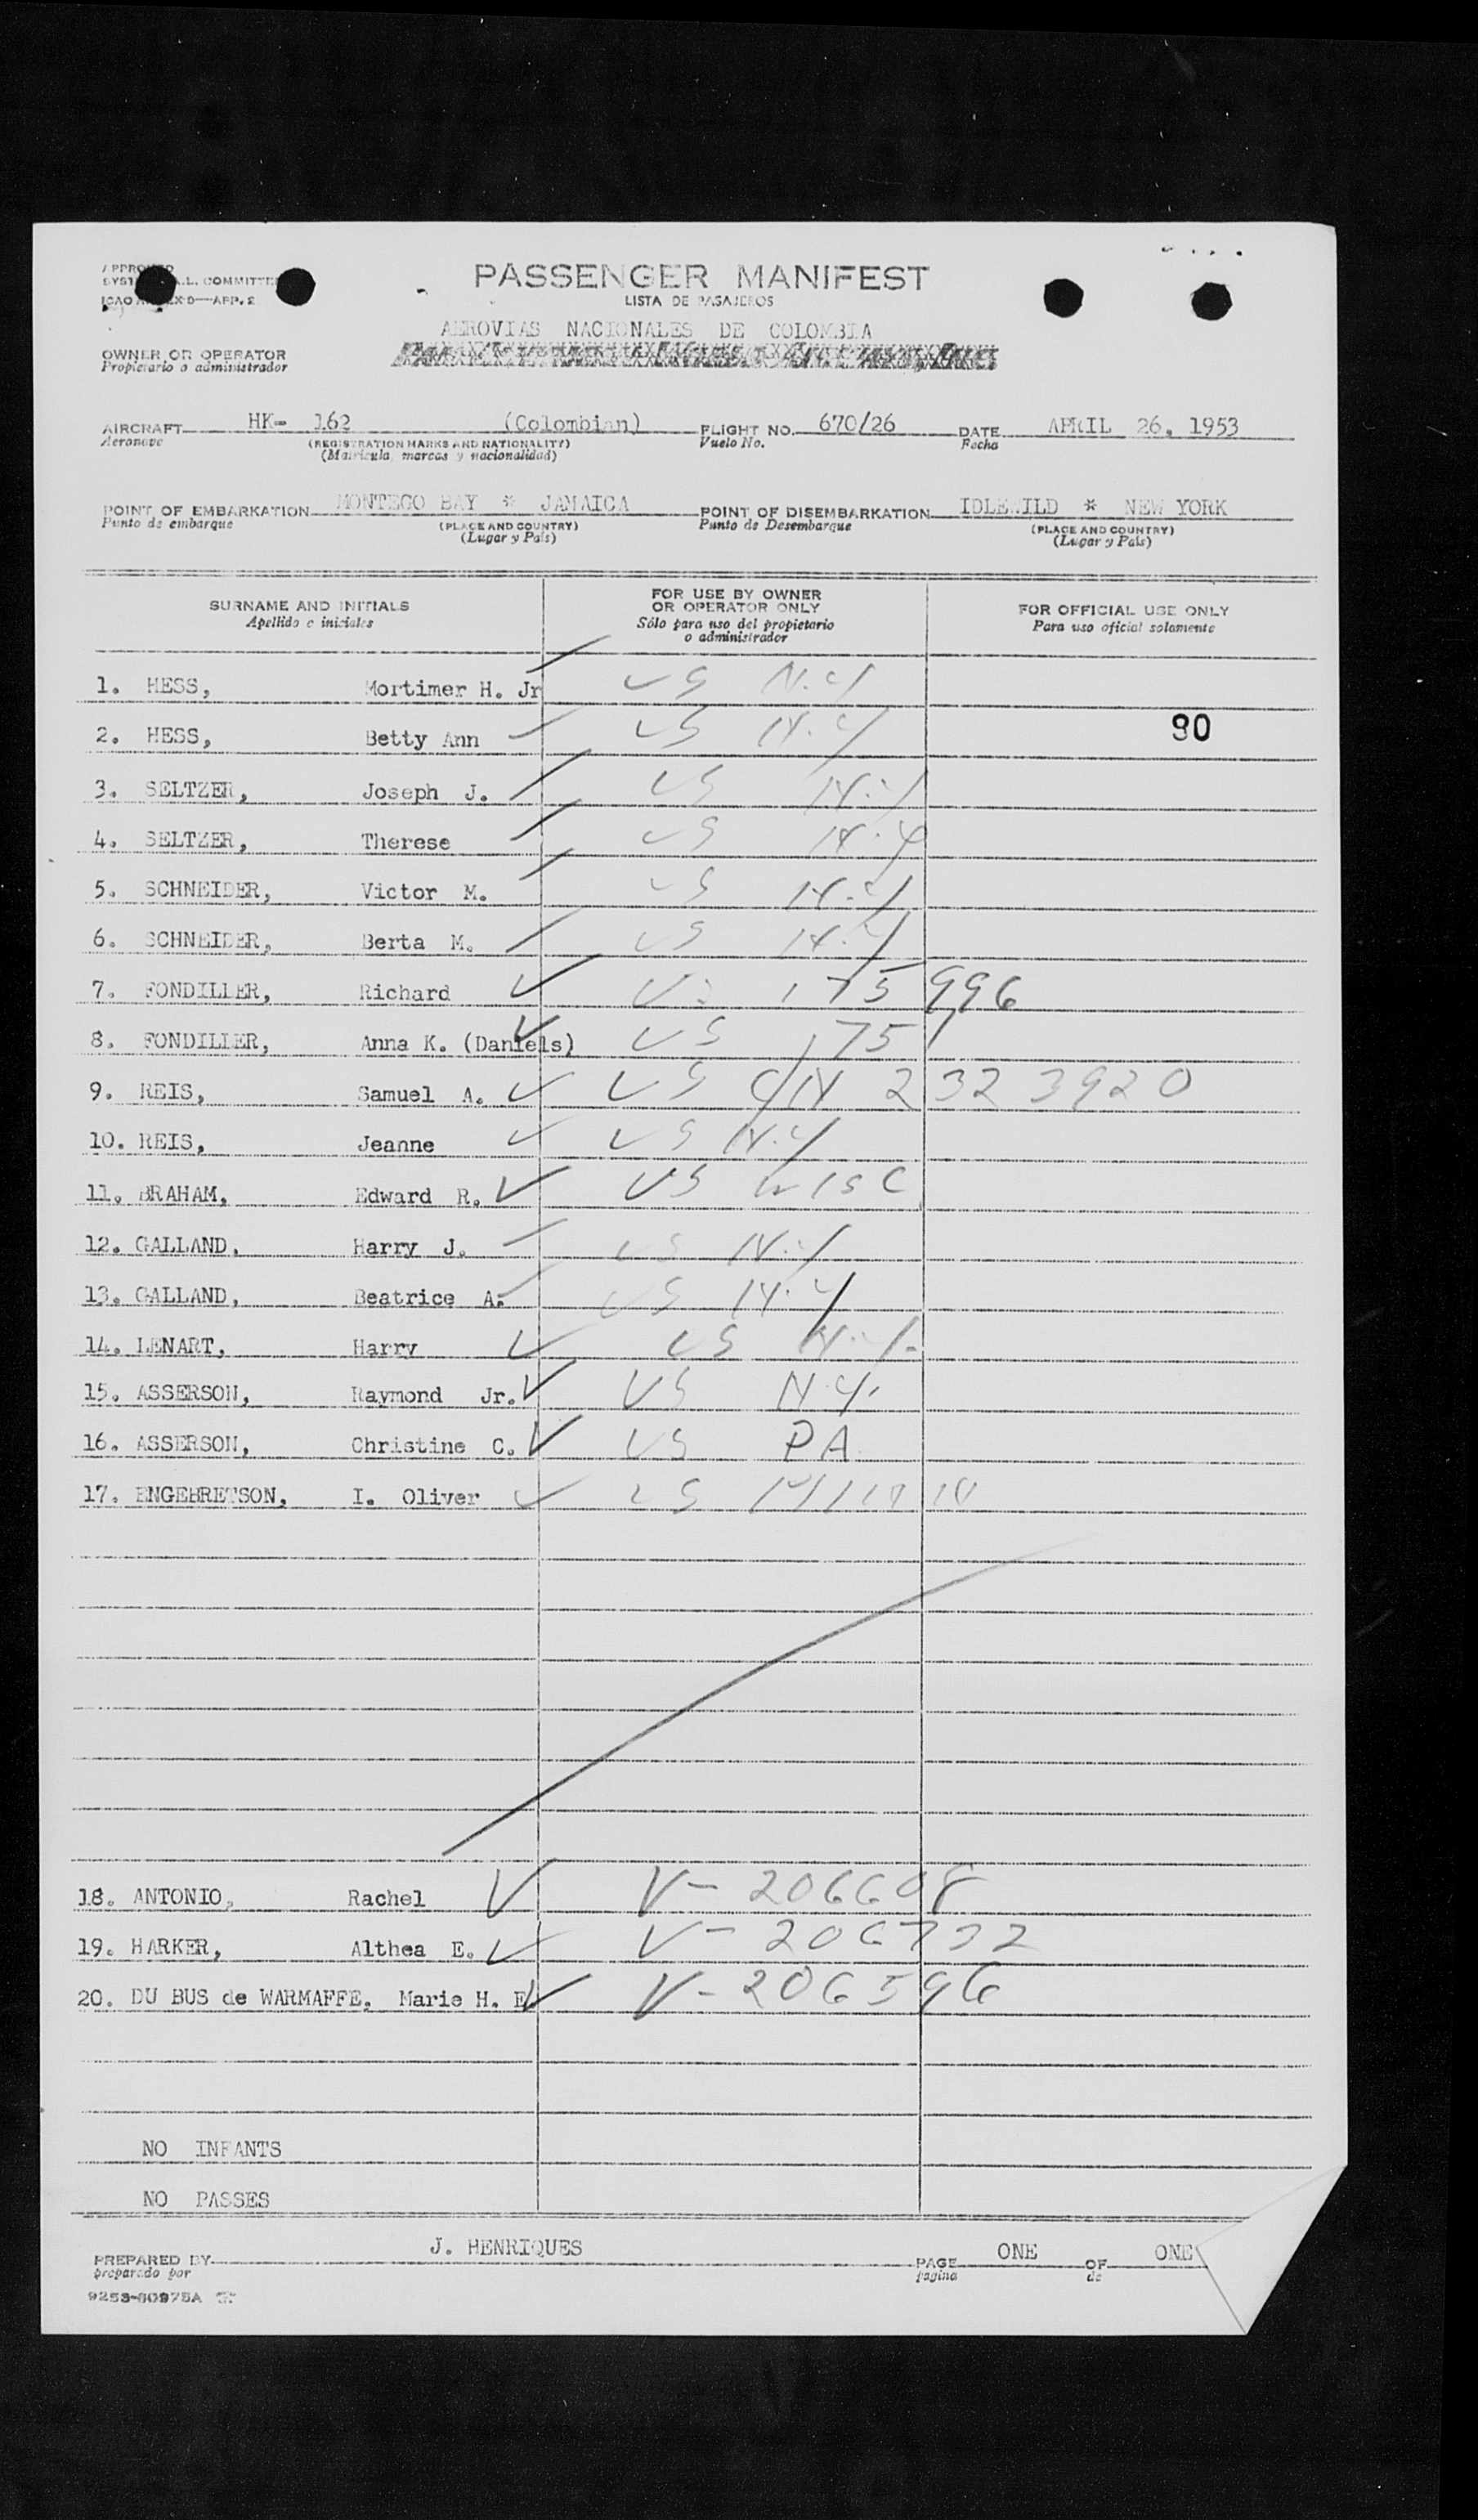 PASSENGER MANIFEST
LISTA DE PASAJEROS
ICAO ANNEX D—APP. 2
AEROVIAS NACIONALES DE COLOMBIA
OWNER OR OPERATOR
Propietario o administrador
AIRCRAFT HK- 162 (Colombian) FLIGHT NO. 670/26 DATE APRIL 26, 1953
Aeronave (REGISTRATION MARKS AND NATIONALITY) Vuelo No. Fecha
(Matricula, marcas y nacionalidad)
POINT OF EMBARKATION MONTEGO BAY * JAMAICA POINT OF DISEMBARKATION IDLEWILD * NEW YORK
Punto de embarque (PLACE AND COUNTRY) Punto de Desembarque (PLACE AND COUNTRY)
(Lugar y País) (Lugar y País)
SURNAME AND INITIALS FOR USE BY OWNER OR OPERATOR ONLY FOR OFFICIAL USE ONLY
Apellido e iniciales Sólo para uso del propietario o administrador Para uso oficial solamente
1. HESS, Mortimer H. Jr US N.Y
2. HESS, Betty Ann US N.Y 90
3. SELTZER, Joseph J. US N.Y
4. SELTZER, Therese US N.Y
5. SCHNEIDER, Victor M. US N.Y
6. SCHNEIDER, Berta M. US N.Y
7. FONDILLER, Richard US 175996
8. FONDILLER, Anna K. (Daniels) US 175
9. REIS, Samuel A. US C/N 2323920
10. REIS, Jeanne US N.Y
11. BRAHAM, Edward R. US WISC
12. GALLAND, Harry J. US N.Y
13. GALLAND, Beatrice A. US N.Y
14. LENART, Harry US N.Y.
15. ASSERSON, Raymond Jr. US N.Y.
16. ASSERSON, Christine C. US PA
17. ENGEBRETSON, I. Oliver US MINN
18. ANTONIO, Rachel V- 206608
19. HARKER, Althea E. V- 206732
20. DU BUS de WARMAFFE, Marie H. E V- 206596
NO INFANTS
NO PASSES
PREPARED BY J. HENRIQUES PAGE ONE OF ONE
preparado por página de
9253-80975A